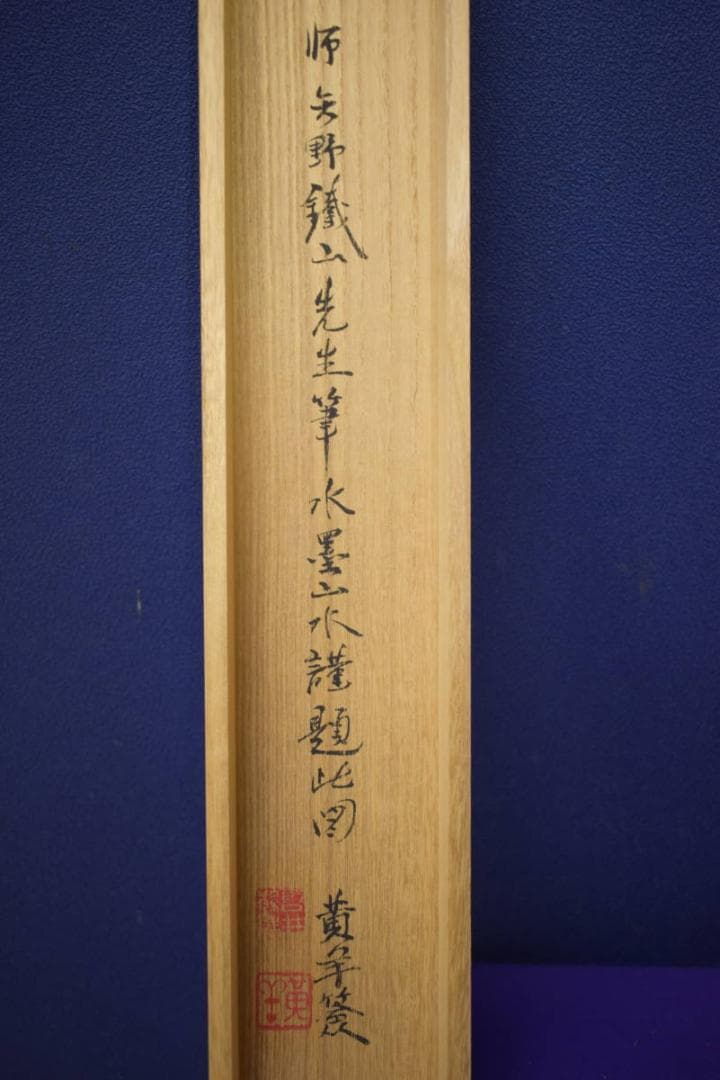 师矢野鐵山先生筆水墨山水謹題此図
黄